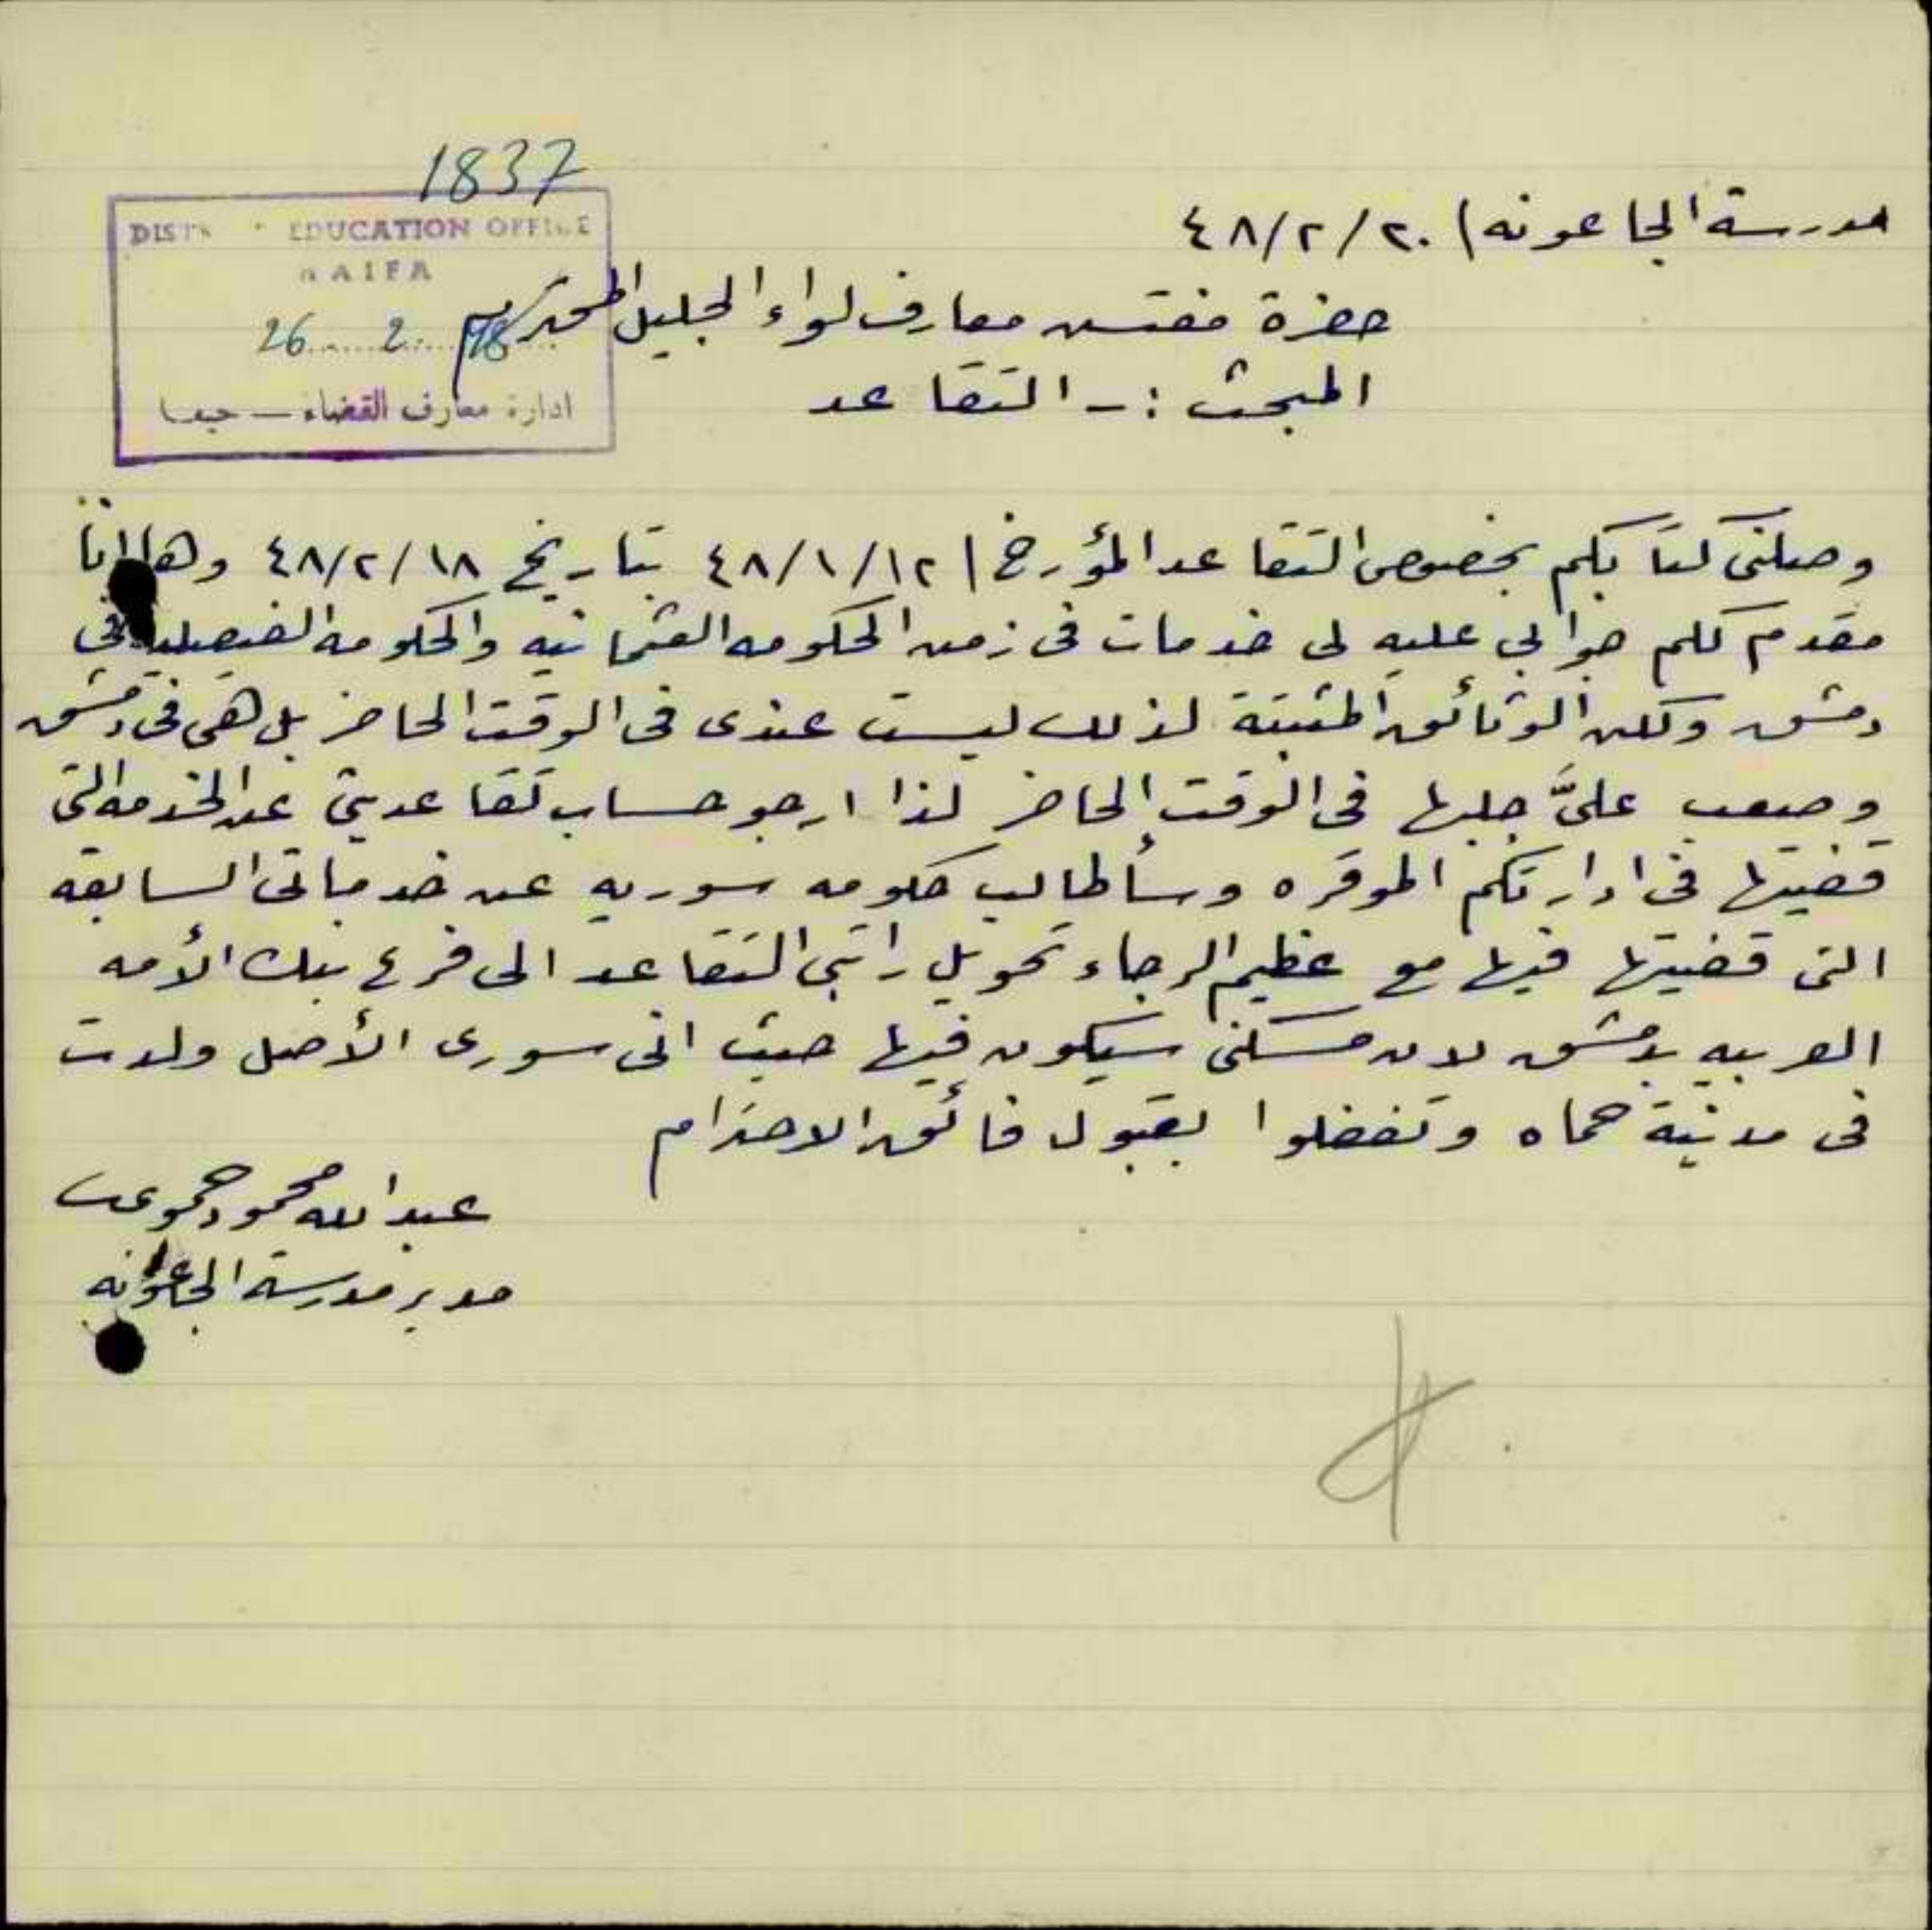 1837
DIST EDUCATION OFFICE
HAIFA
26 2 48
ادارة معارف القضاء — حيفا
مدرسة الجاعونه ) ٢٠/٢/٤٨
حضرة مفتش معارف لواء الجليل المحترم
المبحث :- التقاعد
وصلني كتابكم بخصوص التقاعد المؤرخ ١٢/١/٤٨ بتاريخ ١٨/٢/٤٨ وها انا
مقدم لكم جوابي عليه لى خدمات فى زمن الحكومه العثمانيه والحكومه الفيصليه في
دمشق ولكن الوثائق المثبتة لذلك ليست عندى فى الوقت الحاضر بل هى فى دمشق
وصعب علىَّ جلبها فى الوقت الحاضر لذا ارجو حساب تقاعديتي عن الخدمه التى
قضيتها فى ادارتكم الموقره وسأطالب حكومه سوريه عن خدماتى السابقه
التى قضيتها فيها مع عظيم الرجاء تحويل راتبى التقاعد الى فرع بنك الأمه
العربيه بدمشق لان مسكنى سيكون فيها حيث انى سورى الأصل ولدت
فى مدينة حماه وتفضلوا بقبول فائق الاحترام
عبد الله محمود
مدير مدرسة الجاعونه